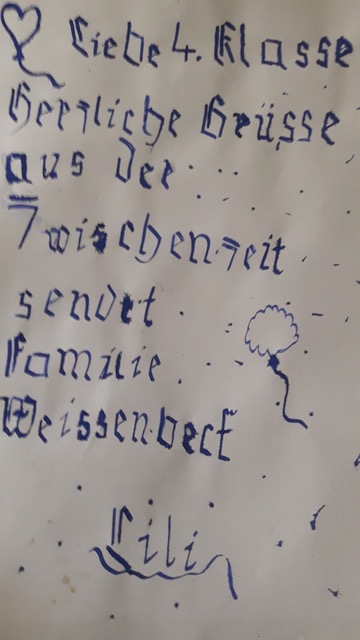 Liebe 4. Klasse
Herzliche Grüsse
aus der
Zwischenzeit
sendet
Familie
Weissenbeck
Lili